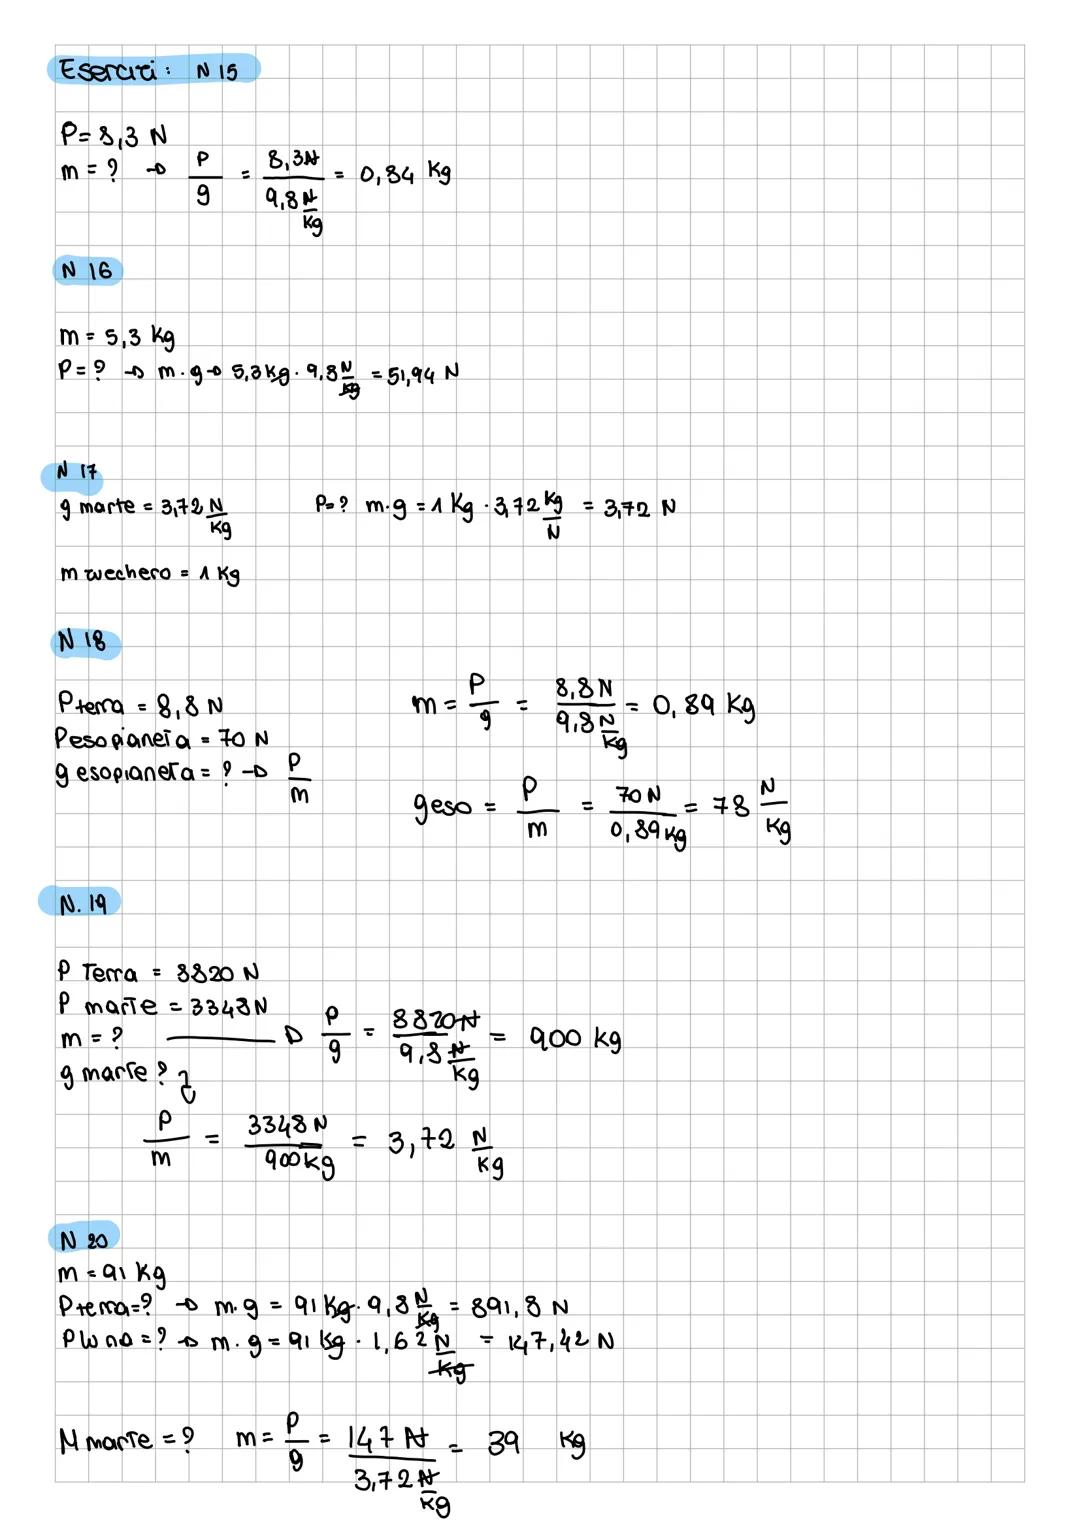 Esercizi: N 15
P = 8,3 N
m = ? → P/g = 8,3N / 9,8 N/Kg = 0,84 Kg
N 16
m = 5,3 Kg
P = ? → m · g → 5,3Kg · 9,8 N/Kg = 51,94 N
N 17
g marte = 3,72 N/Kg P=? m·g = 1 Kg · 3,72 Kg/N = 3,72 N
m zucchero = 1 Kg
N 18
P terra = 8,8 N m = P/g = 8,8 N / 9,8 N/Kg = 0,89 Kg
P esopianeta = 70 N
g esopianeta = ? → P/m
geso = P/m = 70 N / 0,89 Kg = 78 N/Kg
N. 19
P Terra = 8820 N
P marte = 3348 N
m = ? → P/g = 8820 N / 9,8 N/Kg = 900 kg
g marte ?
P/m = 3348 N / 900 kg = 3,72 N/Kg
N 20
m = 91 Kg
P terra = ? → m · g = 91 Kg · 9,8 N/Kg = 891,8 N
P luna = ? → m · g = 91 kg · 1,62 N/Kg = 147,42 N
M marte = ? m = P/g = 147 N / 3,72 N/Kg = 39 Kg